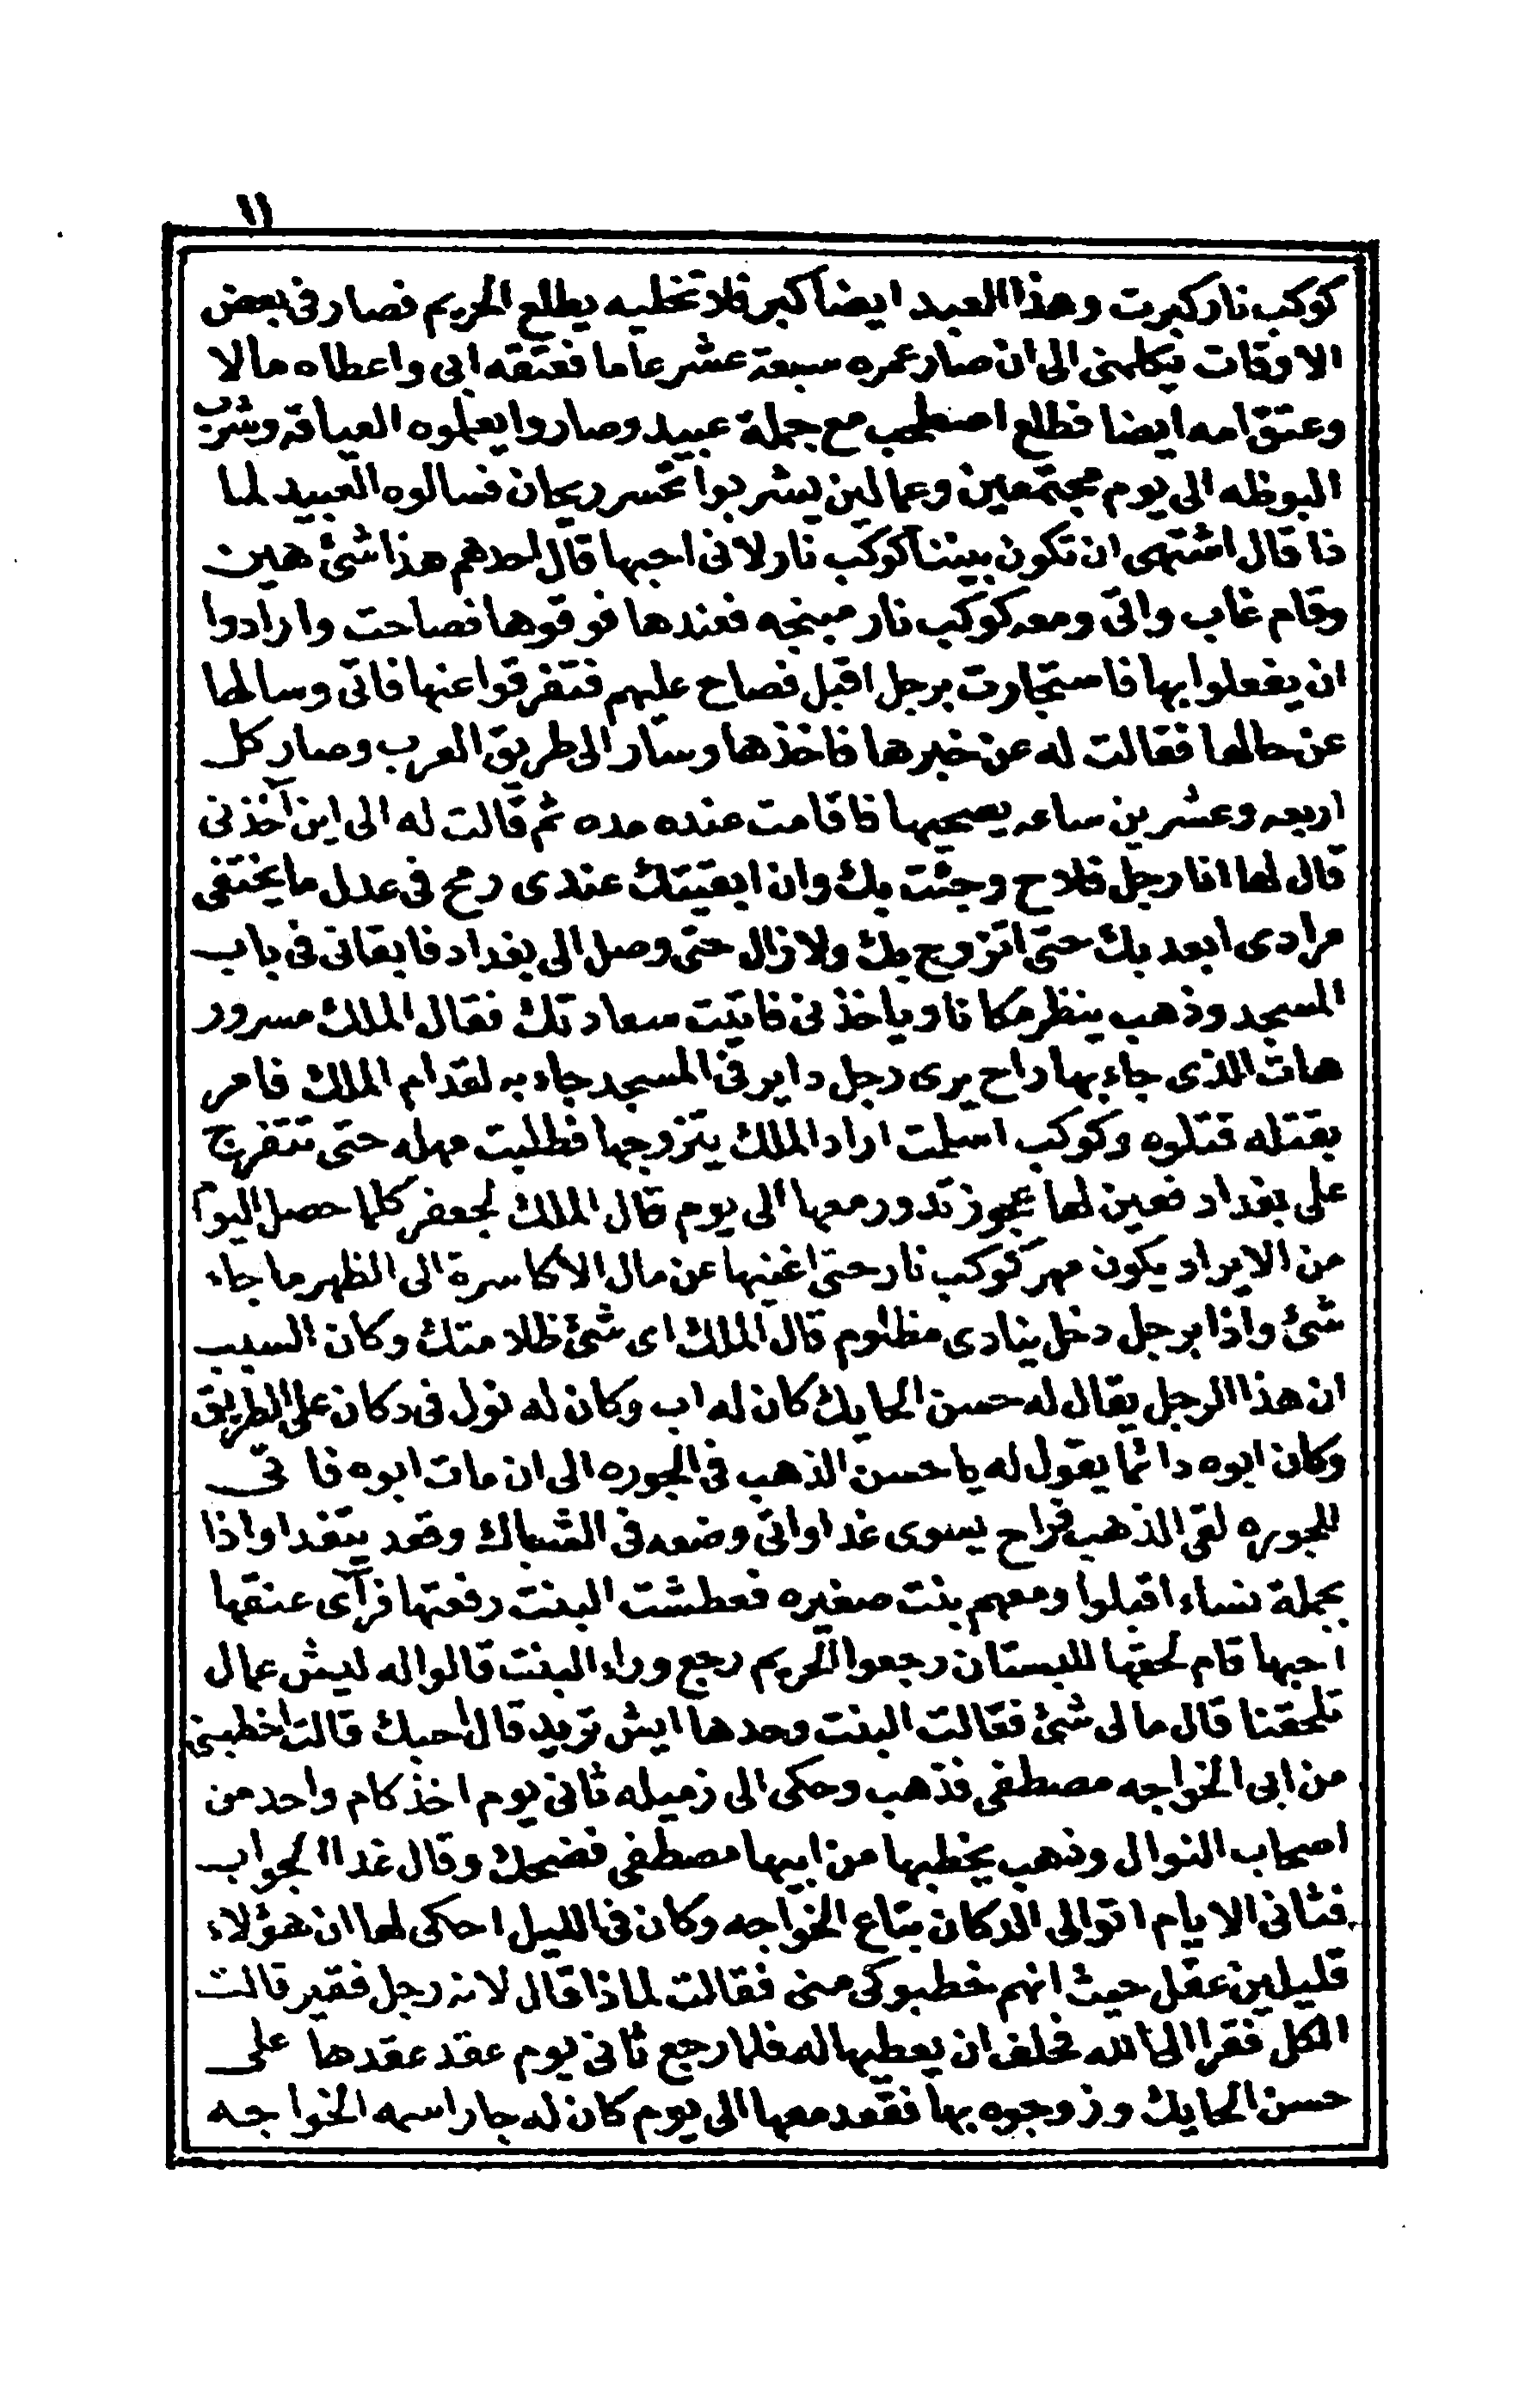 ١١
كوكب نار كبرت وهذا العبد ايضا كبر فلا تخليه يطلع الحريم فصار فى بعض
الاوقات يكلمنى الى ان صار عمره سبعة عشر عاما فعتقه ابى واعطاه مالا
وعتق امه ايضا فطلع اصطحب مع جملة عبيد وصاروا يعلموه العياقه وشرب
البوظه الى يوم مجتمعين وعمالين يشربوا تحسر ريحان فسالوه العبيد لما
ذا قال اشتهى ان تكون بيننا كوكب نار لانى احبها قال احدهم هذا شئ هين
وقام غاب واتى ومعه كوكب نار مبنجه فعندها فوقوها فصاحت وارادوا
ان يفعلوا بها فاستجارت برجل اقبل فصاح عليهم فتفرقوا عنها فاتى وسالها
عن حالها فقالت له عن خبرها فاخذها وسار الى طريق العرب وصار كل
اربعه وعشرين ساعه يصحيها فاقامت عنده مده ثم قالت له الى اين آخذنى
قال لها انا رجل فلاح وجئت بك وان ابقيتك عندى رمح فى عدل ما يختفى
مرادى ابعد بك حتى اتزوج بك ولا زال حتى وصل الى بغداد فابقانى فى باب
المسجد وذهب ينظر مكانا وياخذنى فاتيت سعادتك فقال الملك مسرور
هات الذى جاء بها راح يرى رجل داير فى المسجد جاء به لقدام الملك فامر
بقتله قتلوه وكوكب اسلمت اراد الملك يتزوجها فطلبت مهله حتى تتفرج
على بغداد فعين لها عجوز تدور معها الى يوم قال الملك لجعفر كلما حصل اليوم
من الايراد يكون مهر كوكب نار حتى اغنيها عن مال الاكاسرة الى الظهر ما جاء
شئ واذا برجل دخل ينادى مظلوم قال الملك اى شئ ظلامتك وكان السبب
ان هذا الرجل يقال له حسن الحايك كان له اب وكان له نول فى دكان على الطريق
وكان ابوه دائما يقول له يا حسن الذهب فى الجوره الى ان مات ابوه فاتى
للجوره لقى الذهب فراح يسوى غدا واتى وضعه فى الشباك وقعد يتغدا واذا
بجملة نساء اقبلوا ومعهم بنت صغيره فعطشت البنت رفعتها فرآى عنقها
احبها قام لحقها للبستان رجعوا الحريم رجع وراء البنت قالوا له ليش عمال
تلحقنا قال ما لى شئ فقالت البنت وحدها ايش تريد قال احبك قالت اخطبنى
من ابى الخواجه مصطفى فذهب وحكى الى زميله ثانى يوم اخذ كام واحد من
اصحاب النوال وذهب يخطبها من ابيها مصطفى فضحك وقال غدا الجواب
فثانى الايام اتوا لى الدكان بتاع الخواجه وكان فى الليل احكى لها ان هؤلاء
قليلين عقل حيث انهم خطبوكى منى فقالت لماذا قال لانه رجل فقير قالت
الكل فقرا الى الله فحلف ان يعطيها له فلما رجع ثانى يوم عقد عقدها على
حسن الحايك وزوجوه بها فقعد معها الى يوم كان له جار اسمه الخواجه